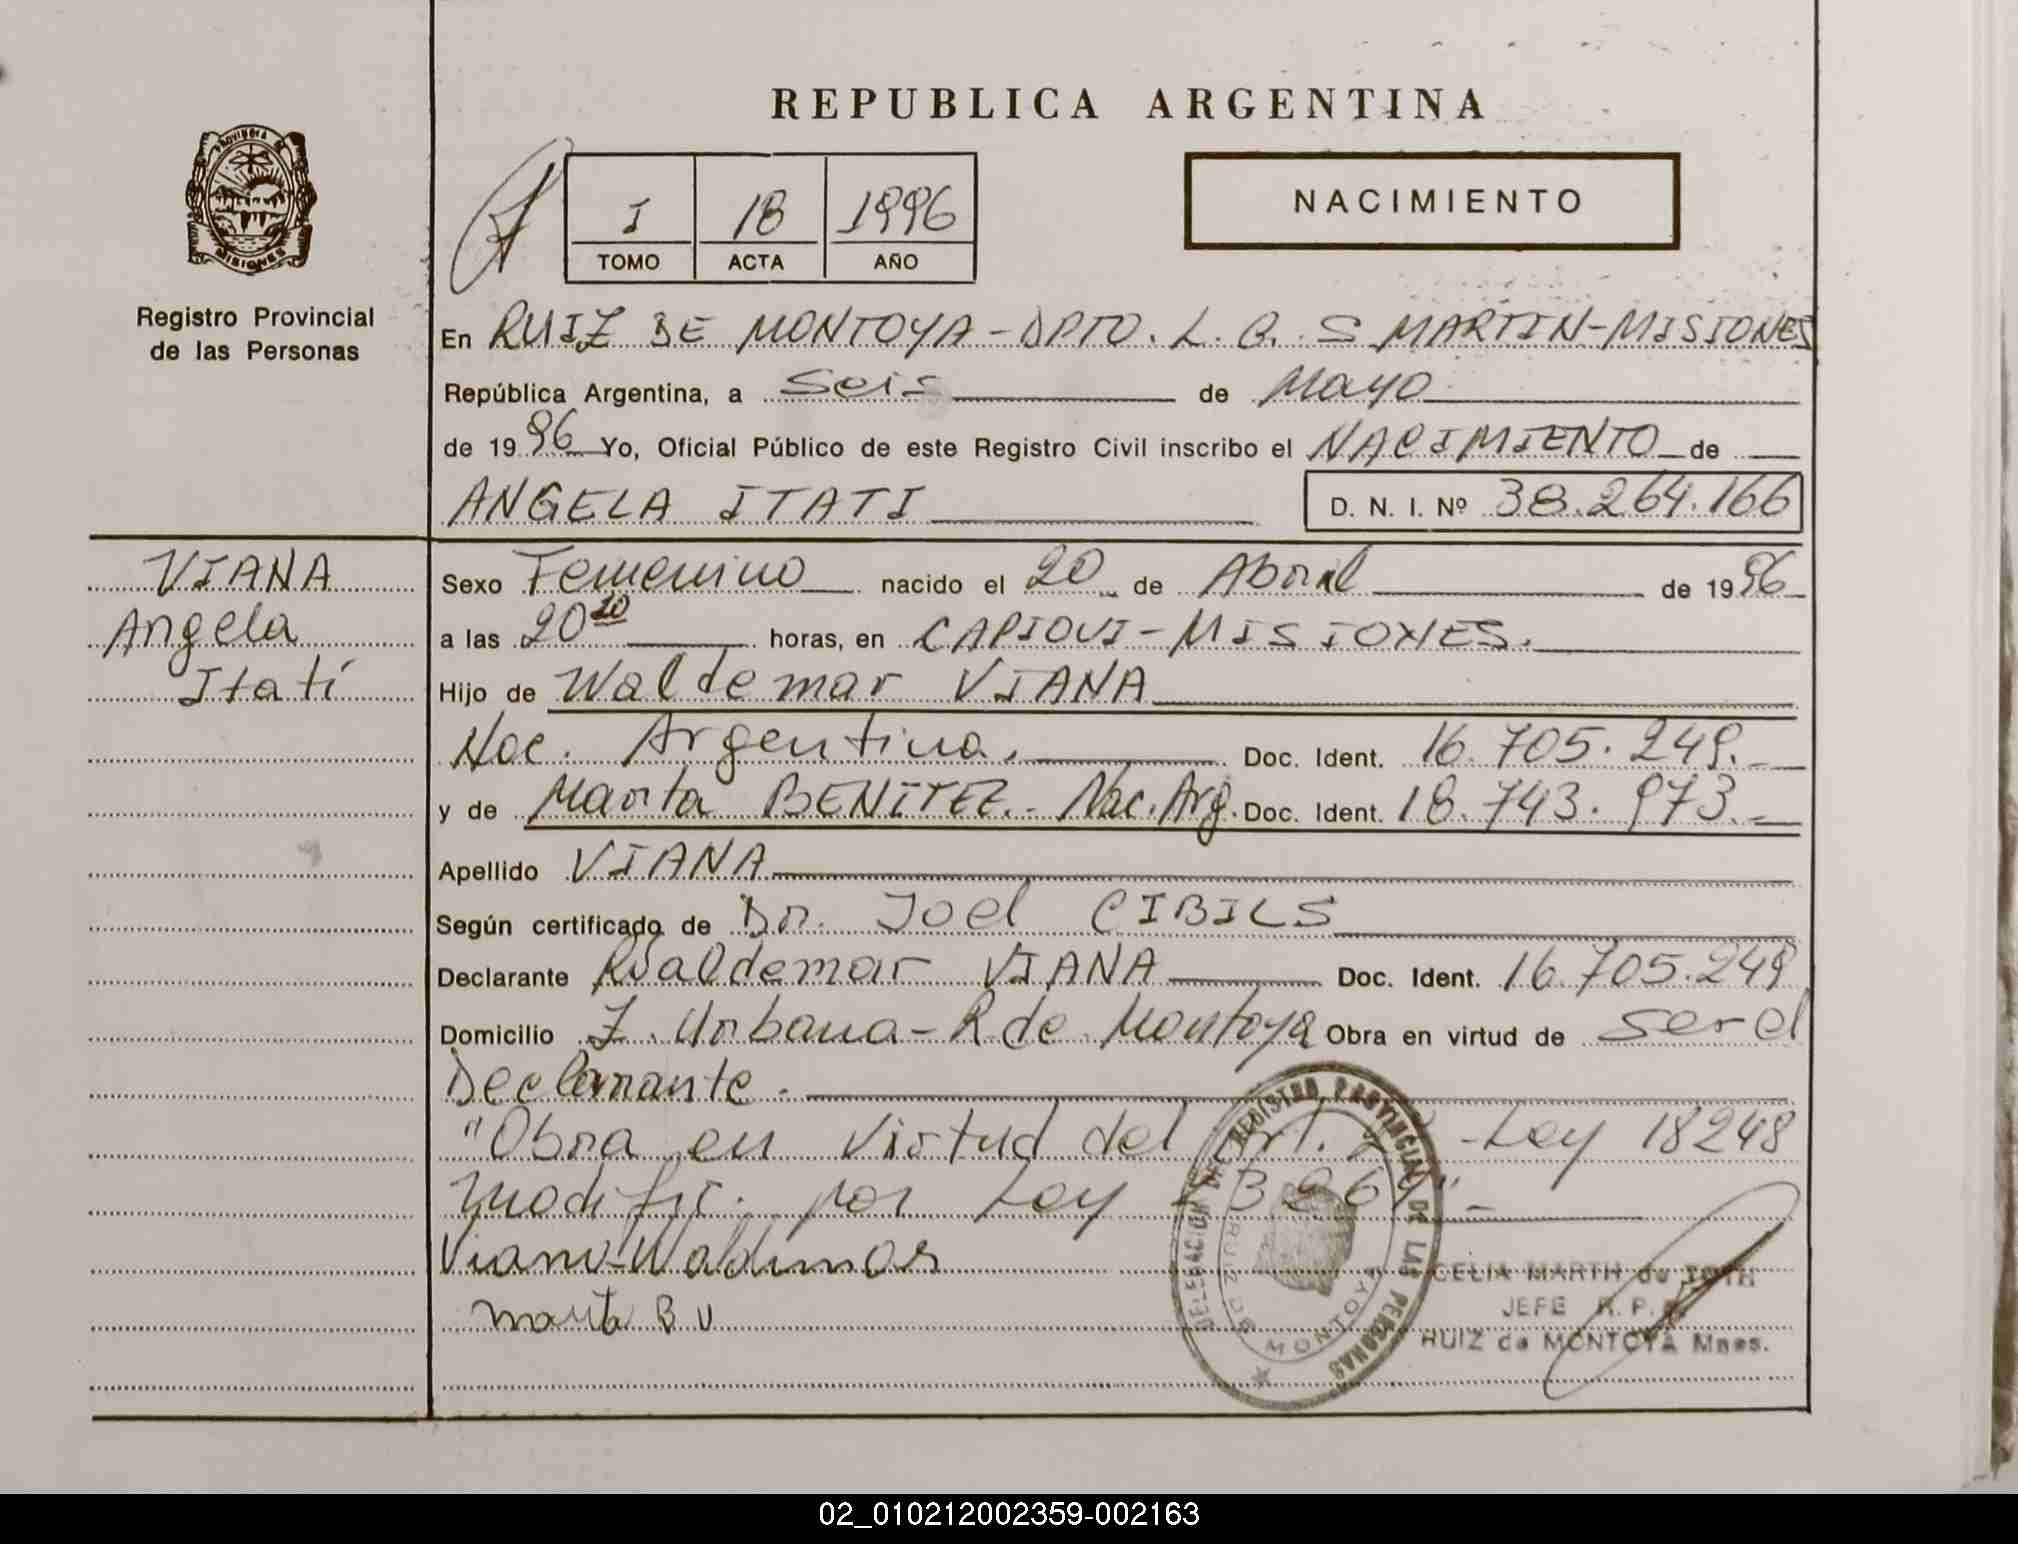 REPUBLICA ARGENTINA
PROVINCIA DE
MISIONES
Registro Provincial
de las Personas
I 18 1996
TOMO ACTA AÑO
NACIMIENTO
En RUIZ DE MONTOYA - DPTO. L. G. S MARTIN - MISIONES
República Argentina, a Seis de Mayo
de 1996 Yo, Oficial Público de este Registro Civil inscribo el NACIMIENTO de
ANGELA ITATI D. N. I. Nº 38.264.166
VIANA
Angela
Itatí
Sexo Femenino nacido el 20 de Abril de 1996
a las 20 10 horas, en CAPIOVI - MISIONES.
Hijo de Waldemar VIANA
Nac. Argentina. Doc. Ident. 16.705.249.-
y de Marta BENITEZ.- Nac. Arg. Doc. Ident. 18.743.973.-
Apellido VIANA
Según certificado de Dr. Joel CIBILS
Declarante Waldemar VIANA Doc. Ident. 16.705.249
Domicilio Z. Urbana - R de Montoya Obra en virtud de ser el
Declarante.
"Obra en virtud del Art. 2 - Ley 18248
modific. por Ley
Viana Waldemar
Marta B V
DELEGACION DEL REGISTRO PROVINCIAL DE LAS PERSONAS
RUIZ DE MONTOYA
CELIA MARTH de TOTH
JEFE R. P. P.
RUIZ de MONTOYA Mnes.
02_010212002359-002163